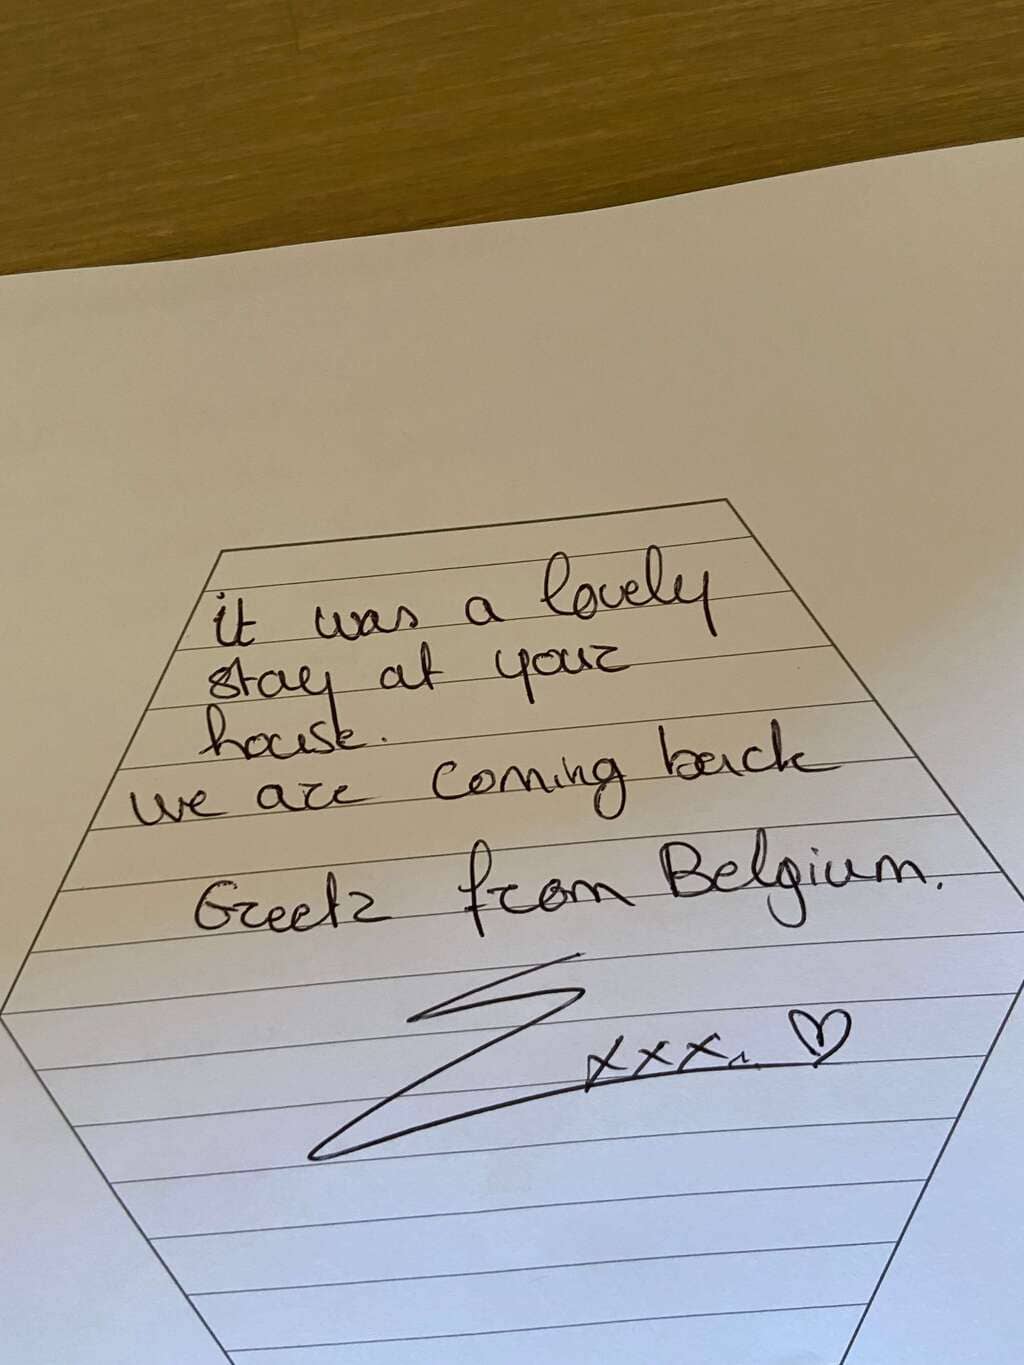 it was a lovely
stay at your
house.
we are coming back
Greetz from Belgium.
xxx. ♡